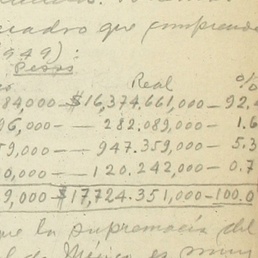 cuadro que comprende
1949):
Pesos
Real %
84,000 — $16,374,661,000 — 92.
96,000 — 282.089,000 — 1.6
59,000 — 947.359,000 — 5.3
0,000 — 120.242,000 — 0.7
9,000 $17,724.351,000 — 100.0
que la supremacía del
de México es muy